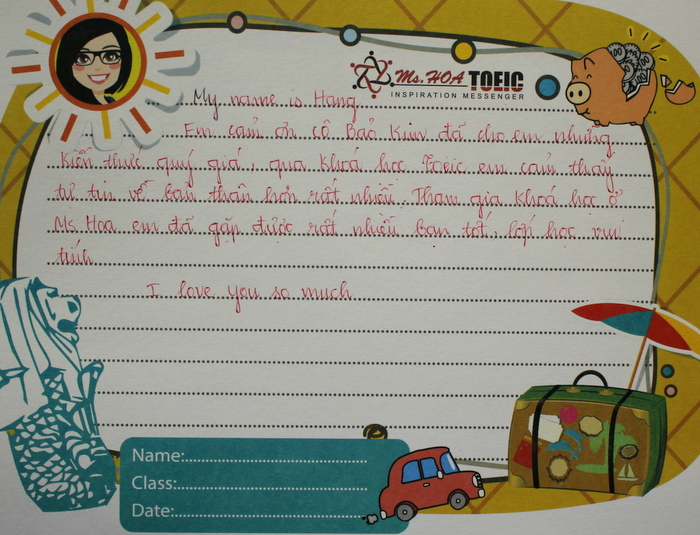 Ms. HOA TOEIC
INSPIRATION MESSENGER
My name is Hang.
Em cảm ơn cô Bảo Kim đã cho em những
kiến thức quý giá, qua khoá học Toeic em cảm thấy
tự tin về bản thân hơn rất nhiều. Tham gia khoá học ở
Ms. Hoa em đã gặp được rất nhiều bạn tốt, lớp học vui
tính.
I love you so much
Name:
Class:
Date: